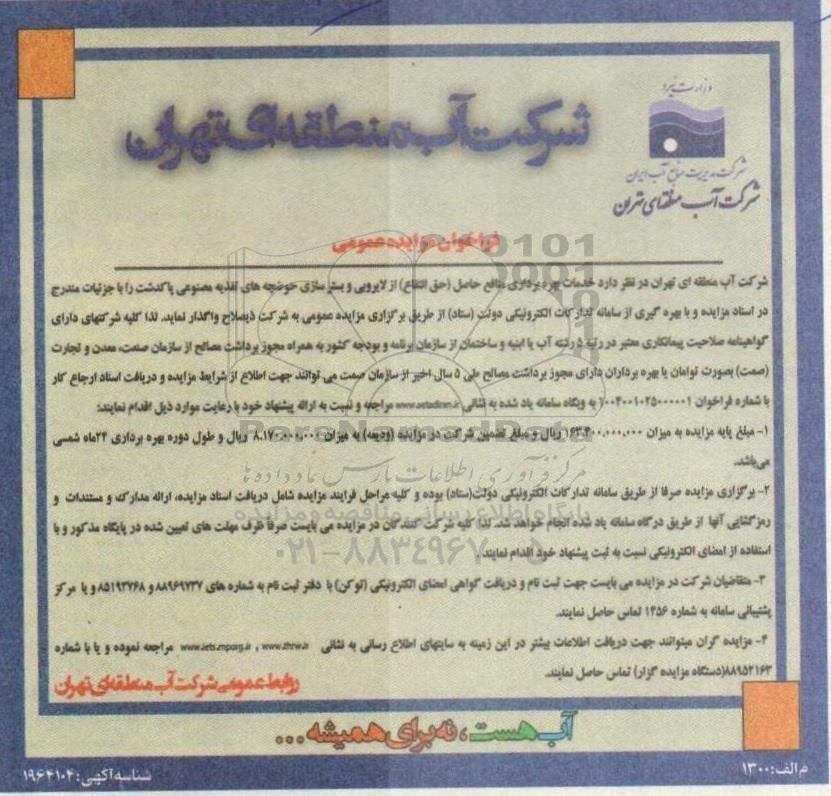 وزارت نیرو
شرکت مدیریت منابع آب ایران
شرکت آب منطقه‌ای تهران
شرکت آب منطقه‌ای تهران
فراخوان مزایده عمومی
شرکت آب منطقه ای تهران در نظر دارد خدمات بهره برداری منافع حاصل (حق انتفاع) از لایروبی و بستر سازی حوضچه های تغذیه مصنوعی پاکدشت را با جزئیات مندرج
در اسناد مزایده و با بهره گیری از سامانه تدارکات الکترونیکی دولت (ستاد) از طریق برگزاری مزایده عمومی به شرکت ذیصلاح واگذار نماید. لذا کلیه شرکتهای دارای
گواهینامه صلاحیت پیمانکاری معتبر در رتبه ۵ رشته آب یا ابنیه و ساختمان از سازمان برنامه و بودجه کشور به همراه مجوز برداشت مصالح از سازمان صنعت، معدن و تجارت
(صمت) بصورت توامان یا بهره برداران دارای مجوز برداشت مصالح طی ۵ سال اخیر از سازمان صمت می توانند جهت اطلاع از شرایط مزایده و دریافت اسناد ارجاع کار
با شماره فراخوان ۱۰۰۴۰۰۱۰۲۵۰۰۰۰۰۱ به وبگاه سامانه یاد شده به نشانی www.setadiran.ir مراجعه و نسبت به ارائه پیشنهاد خود با رعایت موارد ذیل اقدام نمایند:
۱- مبلغ پایه مزایده به میزان ۱۶۳.۴۰۰.۰۰۰.۰۰۰ ریال و مبلغ تضمین شرکت در مزایده (ودیعه) به میزان ۸.۱۷۰.۰۰۰.۰۰۰ ریال و طول دوره بهره برداری ۲۴ماه شمسی
می‌باشد.
۲- برگزاری مزایده صرفا از طریق سامانه تدارکات الکترونیکی دولت(ستاد) بوده و کلیه مراحل فرایند مزایده شامل دریافت اسناد مزایده، ارائه مدارک و مستندات و
رمزگشایی آنها از طریق درگاه سامانه یاد شده انجام خواهد شد. لذا کلیه شرکت کنندگان در مزایده می بایست صرفاً ظرف مهلت های تعیین شده در پایگاه مذکور و با
استفاده از امضای الکترونیکی نسبت به ثبت پیشنهاد خود اقدام نمایند.
۳- متقاضیان شرکت در مزایده می بایست جهت ثبت نام و دریافت گواهی امضای الکترونیکی (توکن) با دفتر ثبت نام به شماره های ۸۸۹۶۹۷۳۷ و ۸۵۱۹۳۷۶۸ و یا مرکز
پشتیبانی سامانه به شماره ۱۴۵۶ تماس حاصل نمایند.
۴- مزایده گران میتوانند جهت دریافت اطلاعات بیشتر در این زمینه به سایتهای اطلاع رسانی به نشانی www.iets.mporg.ir , www.thrw.ir مراجعه نموده و یا با شماره
۸۸۹۵۲۱۶۳(دستگاه مزایده گزار) تماس حاصل نمایند.
روابط عمومی شرکت آب منطقه‌ای تهران
آب هست، نه برای همیشه...
م الف: ۱۳۰۰
شناسه آگهی: ۱۹۶۴۱۰۴
ParsNamadData
مرکز فرآوری اطلاعات پارس نماد داده ها
پایگاه اطلاع رسانی مناقصه و مزایده
۰۲۱-۸۸۳۴۹۶۷۰-۵